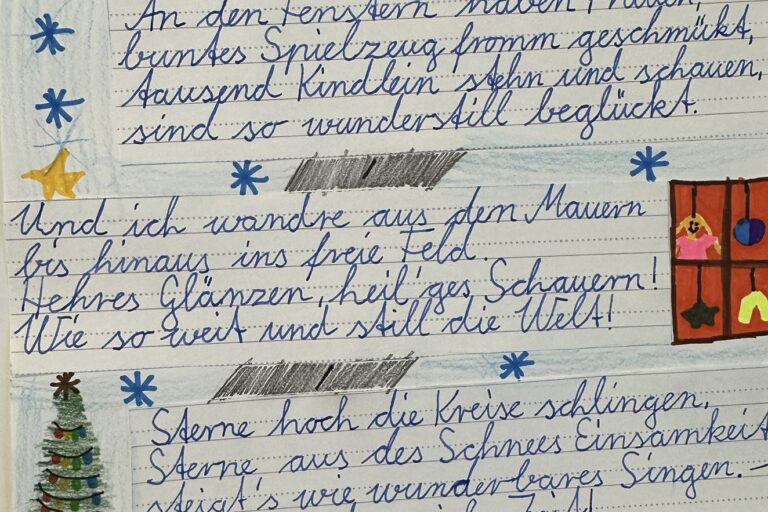 An den Fenstern haben Frauen,
buntes Spielzeug fromm geschmükt,
tausend Kindlein stehn und schauen,
sind so wunderstill beglückt.
Und ich wandre aus den Mauern
bis hinaus ins freie Feld.
Hehres Glänzen, heil'ges Schauern!
Wie so weit und still die Welt!
Sterne hoch die Kreise schlingen,
Sterne aus des Schnees Einsamkeit
steigt's wie wunderbares Singen. –